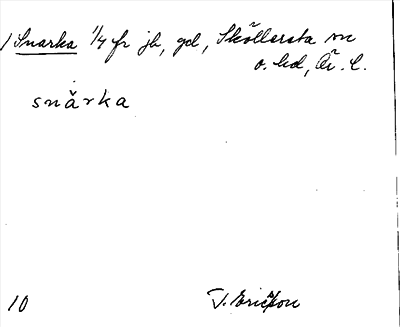 / Snarka 1/4 fr jb, gd, Sköllersta sn
o. hd, Ör. l.
snǎrka
10 T. Ericsson